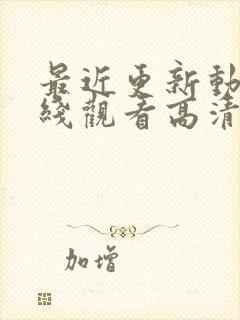 最近更新動
綫觀看高清
加增